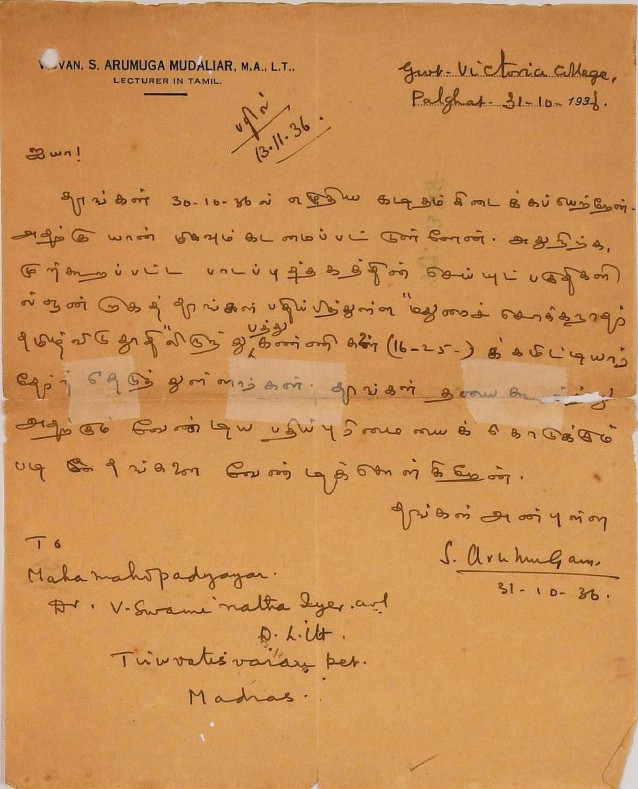 VAN, S. ARUMUGA MUDALIAR, M.A., L.T.,
LECTURER IN TAMIL.
Govt. Victoria College,
Palghat 31-10-1936.
பதில்
13.11.36.
ஐயா!
தாங்கள் 30-10-36 ல் எழுதிய கடிதம் கிடைக்கப்பெற்றேன்.
அதற்கு யான் மிகவும் கடமைப்பட்டுள்ளேன். அதுநிற்க,
முற்கூறப்பட்ட பாடப்புத்தகத்தின் செய்யுட் பகுதிகளி
தாங்கள் பதிப்பித்துள்ள "மதுரைச் சொக்கநாதர்
தமிழ்விடுதூதி"லிருந்து பத்து கண்ணிகள் (16-25-) க்கமிட்டியார்
தேர்ந்தெடுத்துள்ளார்கள். தாங்கள்
அதற்கும் வேண்டிய பதிப்புரிமையைக் கொடுக்கும்
படி தங்களை வேண்டிக்கொள்கிறேன்.
தங்கள் அன்புள்ள
S. Arumugam.
31-10-36.
To
Mahamahopadyayar.
Dr. V. Swaminatha Iyer. avl
D. Litt.
Tiruvatisvaram pet.
Madras.